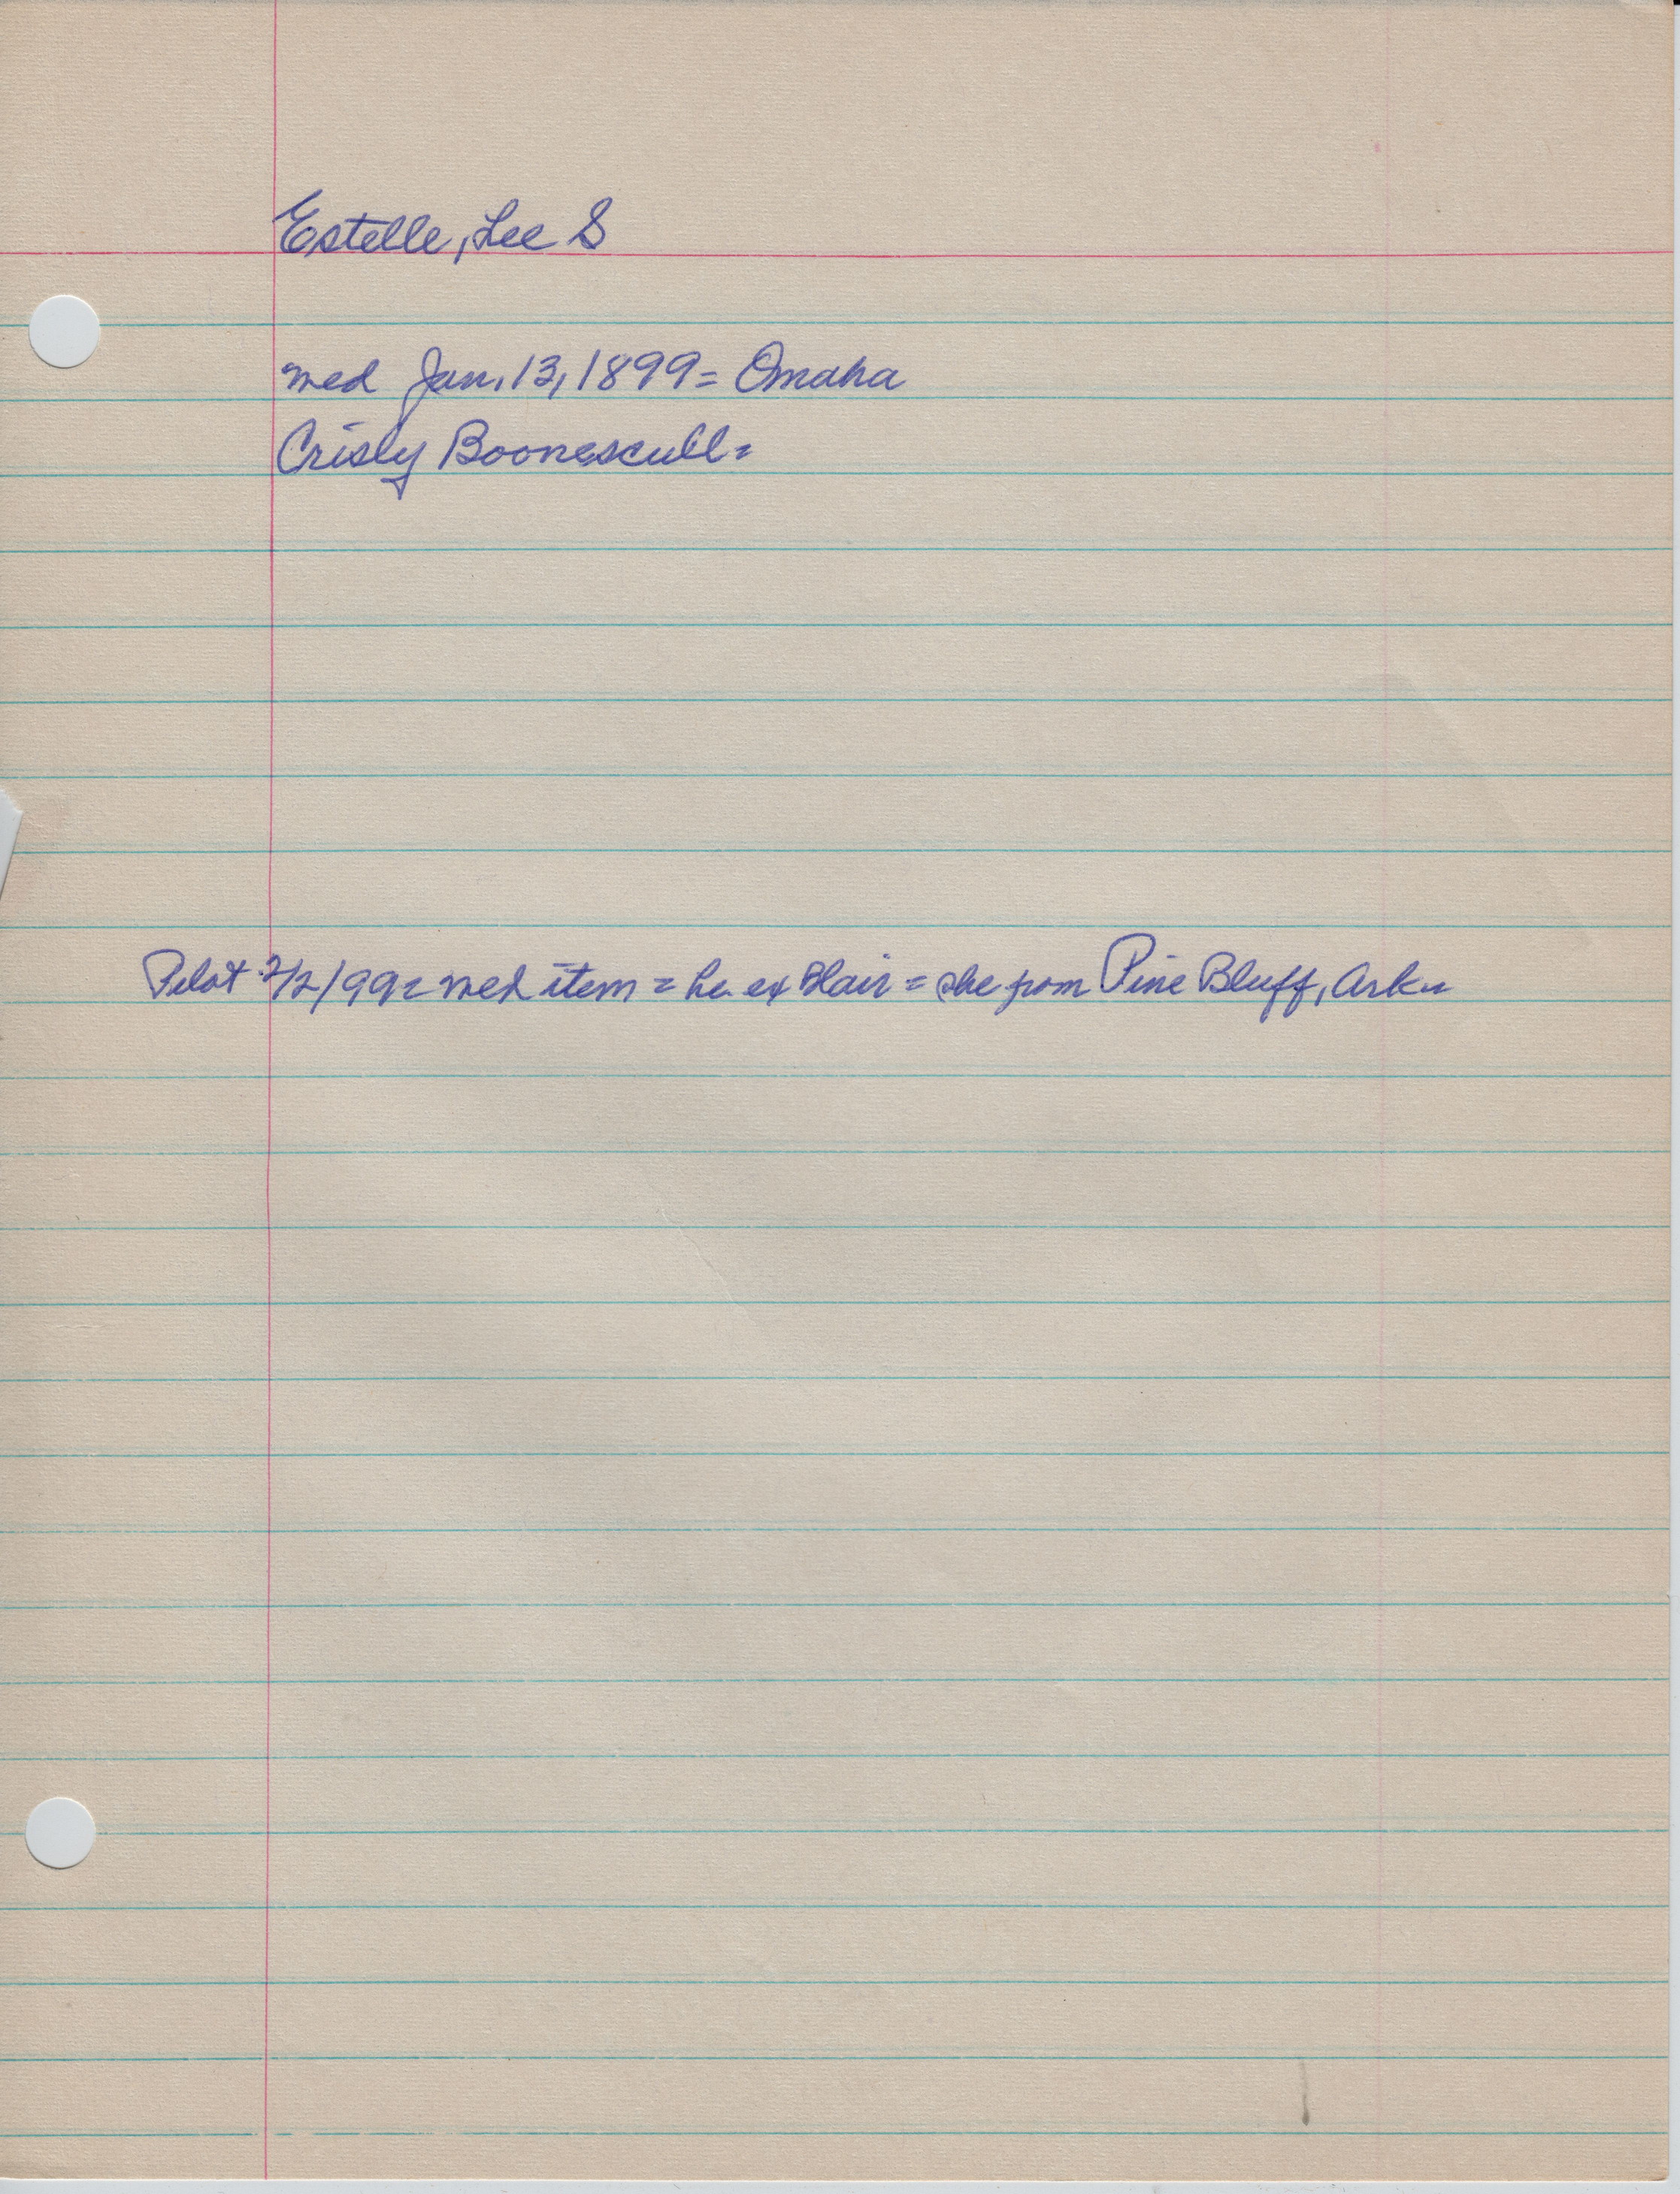 Estelle, Lee S
med Jan. 13, 1899 = Omaha
Cristy Boonescull =
Pilot 2/2/99 = med item = he ex Blair = she from Pine Bluff, Ark =